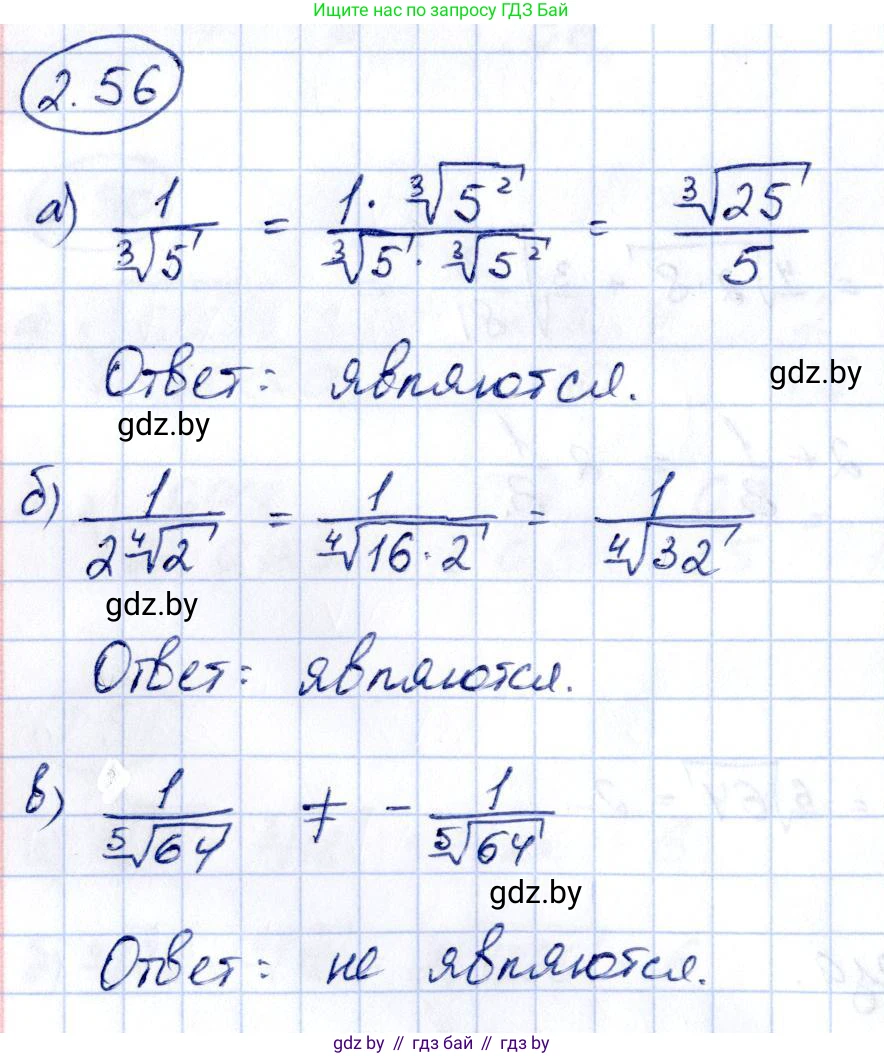 Ищите нас по запросу ГДЗ Бай
2.56
а) 1/∛5 = (1·∛5²)/(∛5·∛5²) = ∛25/5
Ответ: являются.
gdz.by
gdz.by
б) 1/(2∜2) = 1/∜(16·2) = 1/∜32
gdz.by
Ответ: являются.
в) 1/⁵√64 ≠ - 1/⁵√64
gdz.by
Ответ: не являются.
gdz.by // гдз бай // gdz.by